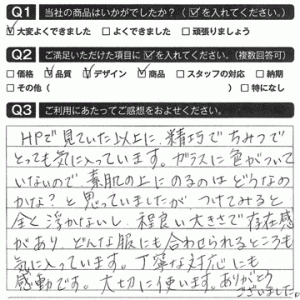 Q1 当社の商品はいかがでしたか？（☑を入れてください。）
☑大変よくできました □よくできました □頑張りましょう
Q2 ご満足いただけた項目に☑を入れてください。（複数回答可）
□価格 ☑品質 ☑デザイン ☑商品 □スタッフの対応 □納期
□その他（ ） □特になし
Q3 ご利用にあたってご感想をおよせください。
HPで見ていた以上に、精巧でちみつで
とっても気に入っています。ガラスに色がついて
いないので、素肌の上にのるのはどうなの
かな？と思っていましたが、つけてみると
全く浮かないし、程良い大きさで存在感
があり、どんな服にも合わせられるところも
気に入っています。丁寧な対応にも
感動です。大切に使います。ありがとう
ございました。